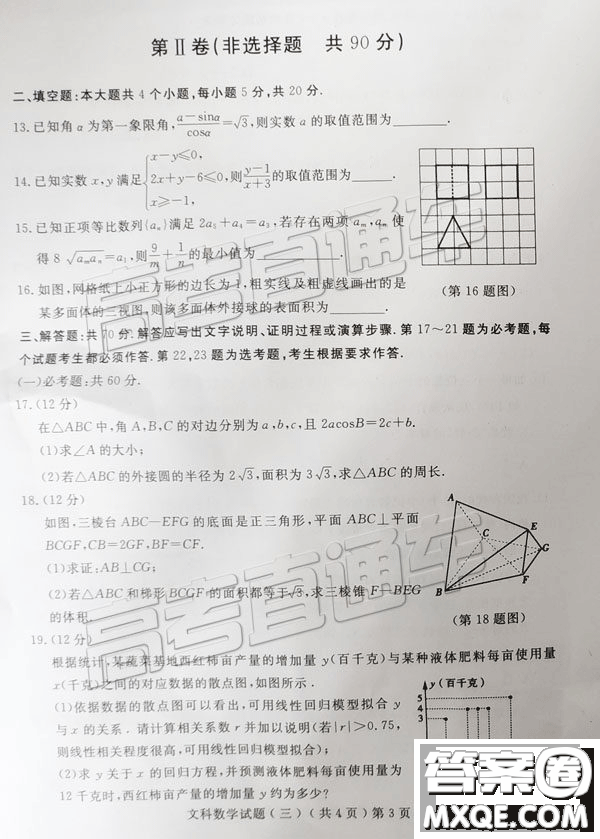 第Ⅱ卷(非选择题 共90分)
二、填空题:本大题共4个小题,每小题5分,共20分.
13.已知角α为第一象限角,(a−sinα)/cosα=√3,则实数a的取值范围为______.
x−y≤0,
14.已知实数x,y满足{2x+y−6≤0,则(y−1)/(x+3)的取值范围为______.
x≥−1,
15.已知正项等比数列{aₙ}满足2a₅+a₄=a₃,若存在两项aₘ,aₙ使
得8√(aₘaₙ)=a₁,则9/m+1/n的最小值为______.
16.如图,网格纸上小正方形的边长为1,粗实线及粗虚线画出的是
某多面体的三视图,则该多面体外接球的表面积为______.
(第16题图)
三、解答题:共70分.解答应写出文字说明、证明过程或演算步骤.第17～21题为必考题,每
个试题考生都必须作答.第22,23题为选考题,考生根据要求作答.
(一)必考题:共60分.
17.(12分)
在△ABC中,角A,B,C的对边分别为a,b,c,且2acosB=2c+b.
(1)求∠A的大小;
(2)若△ABC的外接圆的半径为2√3,面积为3√3,求△ABC的周长.
18.(12分)
如图,三棱台ABC—EFG的底面是正三角形,平面ABC⊥平面
BCGF,CB=2GF,BF=CF.
(1)求证:AB⊥CG;
(2)若△ABC和梯形BCGF的面积都等于√3,求三棱锥F—BEG
的体积.
A
E
C
G
B
F
(第18题图)
19.(12分)
根据统计,某蔬菜基地西红柿亩产量的增加量y(百千克)与某种液体肥料每亩使用量
x(千克)之间的对应数据的散点图,如图所示.
(1)依据数据的散点图可以看出,可用线性回归模型拟合y
与x的关系.请计算相关系数r并加以说明(若|r|>0.75,
则线性相关程度很高,可用线性回归模型拟合);
(2)求y关于x的回归方程,并预测液体肥料每亩使用量为
12千克时,西红柿亩产量的增加量y约为多少?
y(百千克)
5
4
3
文科数学试题(三)(共4页)第3页
高考直通车
高考直通车
答案圈
MXQE.COM